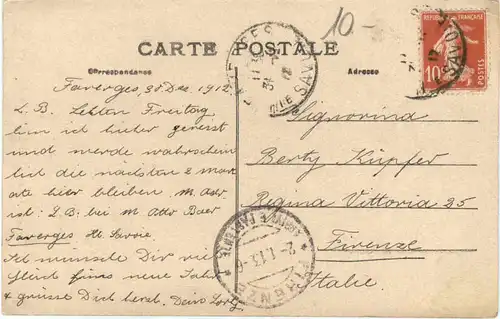 10.-
CARTE POSTALE
Correspondance
Adresse
REPUBLIQUE FRANÇAISE
10
POSTES
Faverges, 30 Dez. 1912
L. B. Letzten Freitag
bin ich hieher gereist
und werde wahrschein
lich die nächsten 2 mon
ate hier bleiben. M. Adr
ist: L. B. bei M. Otto Baer
Faverges Hte Savoie
Ich wünsche Dir viel
Glück fürs neue Jahr
& grüsse Dich herzl. Dein
Signorina
Berty Küpfer
Regina Vittoria 25
Firenze
Italie.
FAVERGES
HTE SAVOIE
31
12
FIRENZE
ARRIVI E PARTENZE
2.1.13-6